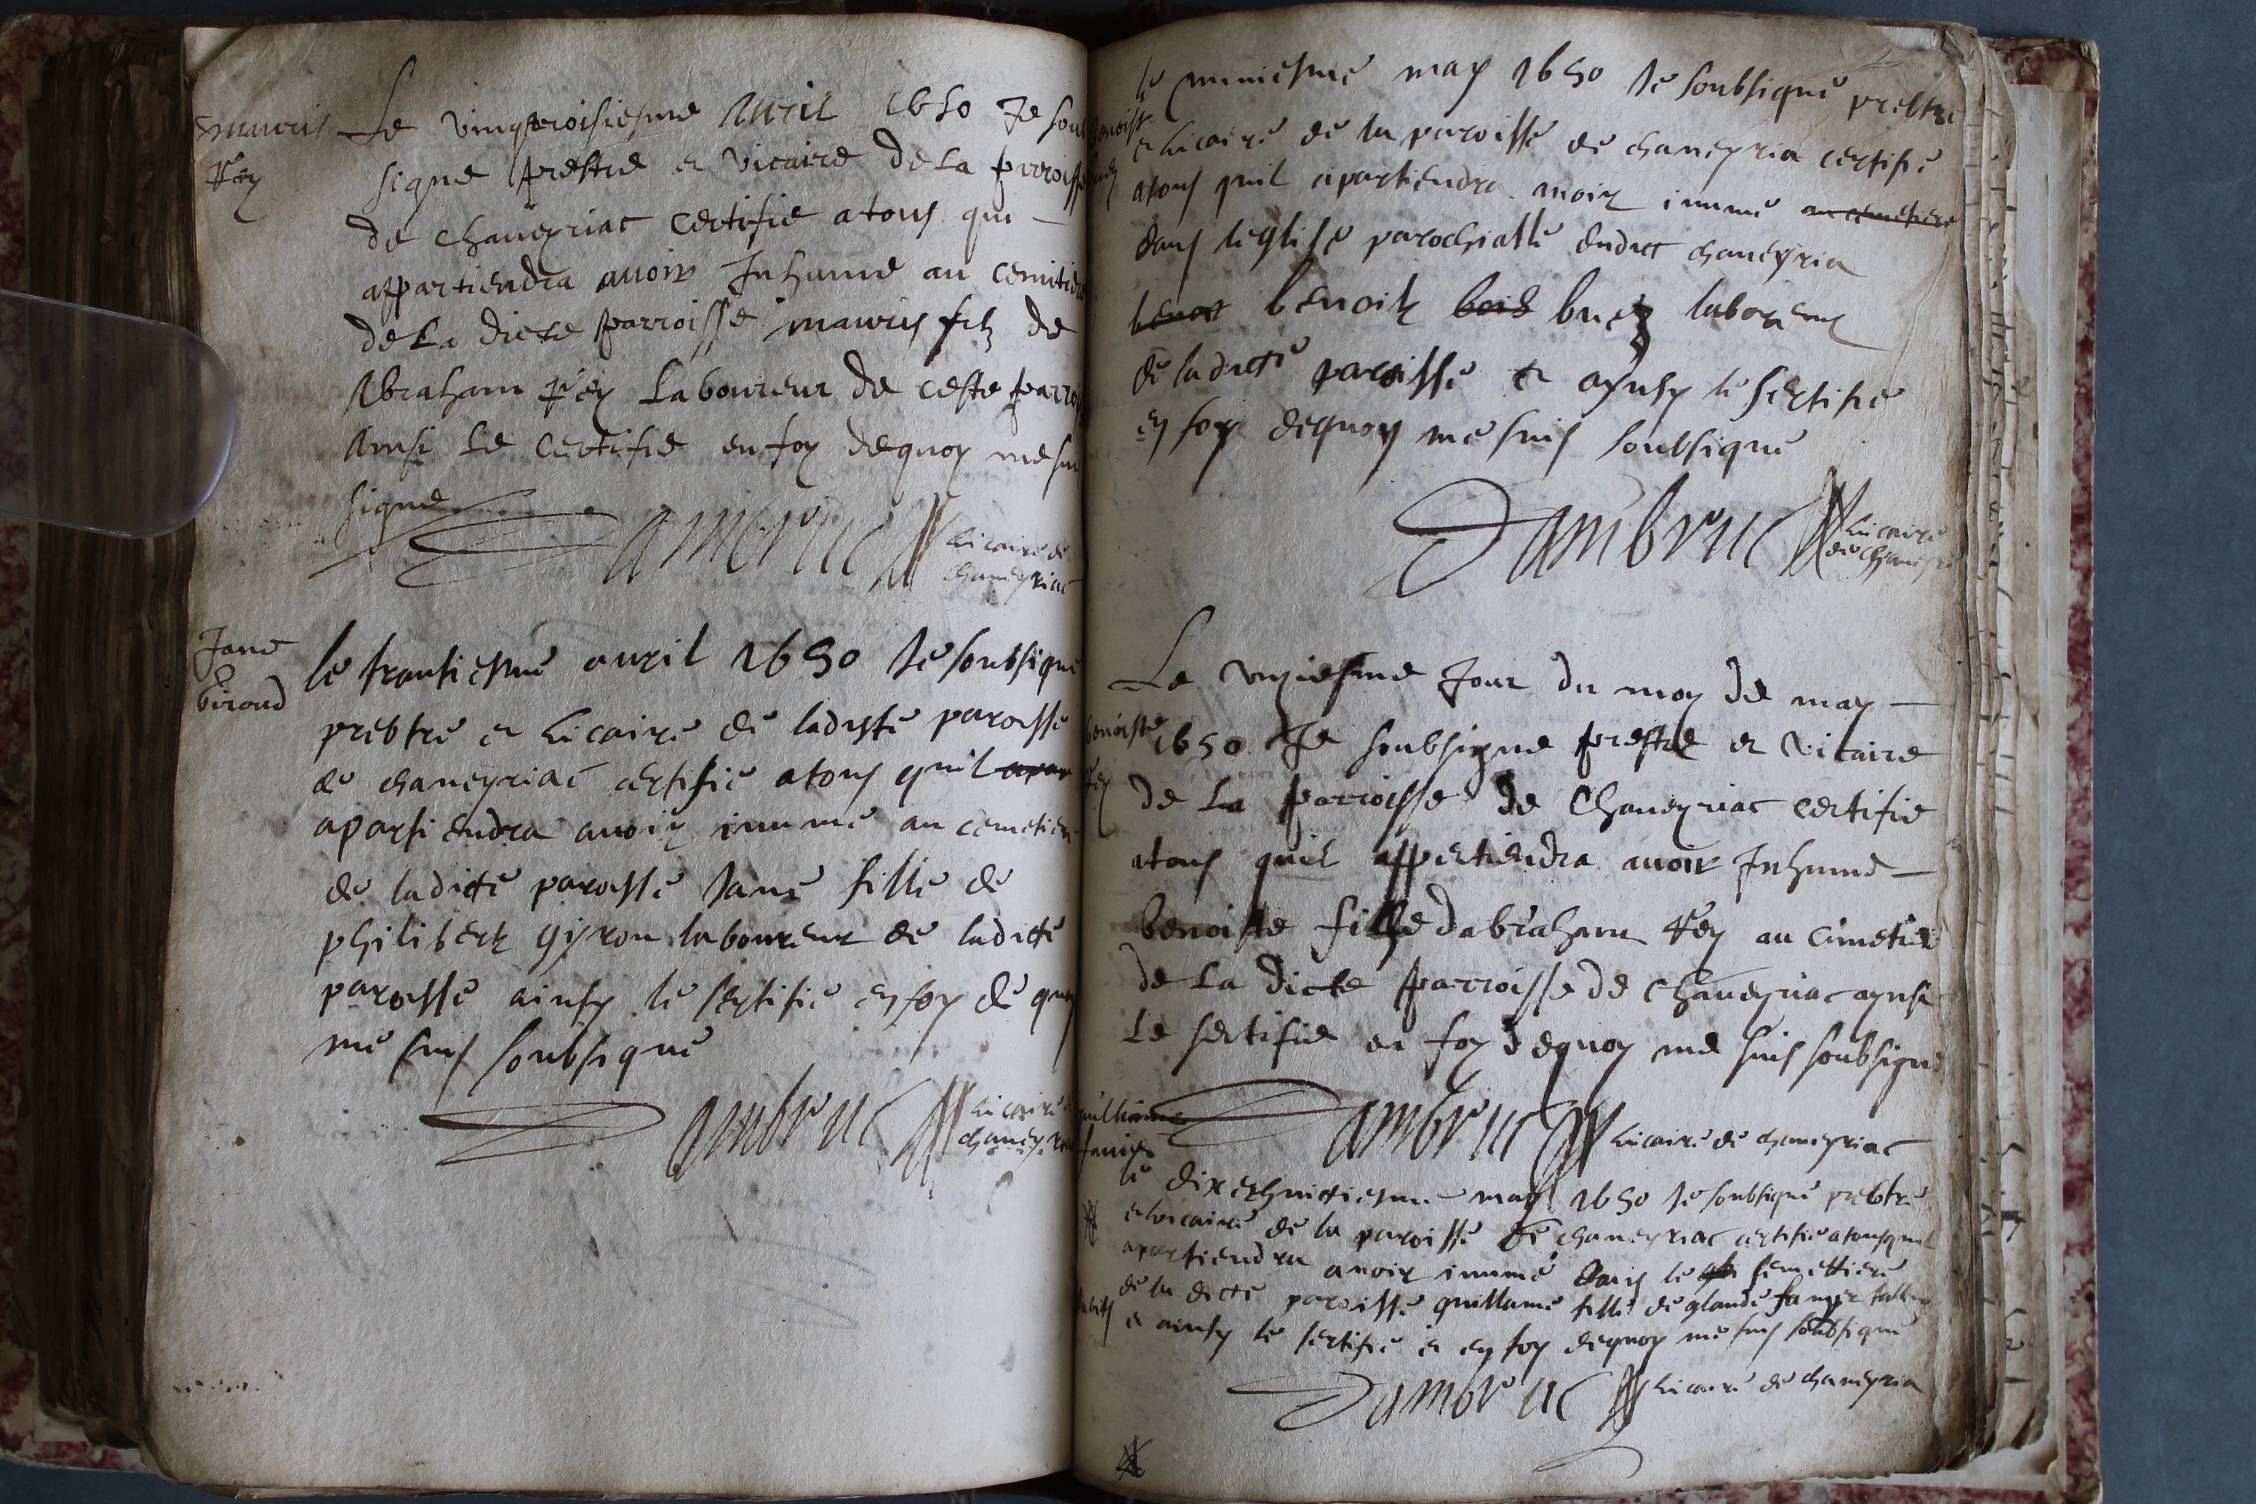 mauris
Rey
Le vingtroisiesme Auril 1650 Je soub
signe prestre et vicaire de La parroisse
de chaneyriac certifie a tous qui
appartiendra auoir Inhume au cemitiere
de La dicte parroisse mauris filz de
Abraham Rey Laboureur de ceste parroi
Ainsi Le certifie en foy de quoy me suis
signe
Dambruc vicaire de
chaneyriac
Jane
Giroud
le trantiesme auril 1650 Je soubsigne
prebtre et vicaire de ladicte paroisse
de chaneyriac certifie a tous quil apar
apartiendra auoir inumé au cemetiere
de ladicte paroisse Jane fille de
philibert gyron laboureur de ladicte
paroisse ainsy le sertifie en foy de quoy
me suis soubsigné
Dambruc vicaire
chaneyria
benoist
le may 1650 Je soubsigné prebtre
et vicaire de la paroisse de chaneyria certifie
a tous quil apartiendra auoir inumé au cemetiere
dans leglise parochialle dudict chaneyria
benoit benoit bois buez laboreur
de ladicte paroisse et aynsy le sertifie
en foy de quoy me suis soubsigné
Dambruc vicaire
de chaneyri
benoiste
Rey
Le unziesme Jour du moy de may
1650 Je soubsigne prestre et vicaire
de La parroisse de Chaneyriac certifie
a tous quil appertiendra auoir Inhume
benoiste fille dabraham Rey au cimetiere
de La dicte parroisse de chaneyriac aynsi
Le sertifie en foy de quoy me suis soubsigne
Dambruc vicaire de chaneyriac
guilliame
le dixethuictiesme may 1650 Je soubsigné prebtre
et vicaire de la paroisse de chaneyriac certifie a tous quil
apartiendra auoir inumé dans le semettiere
de la dicte paroisse guillame fille de glaude
et ainsy le sertifie et en foy de quoy me suis soubsigné
Dambruc vicaire de chaneyria